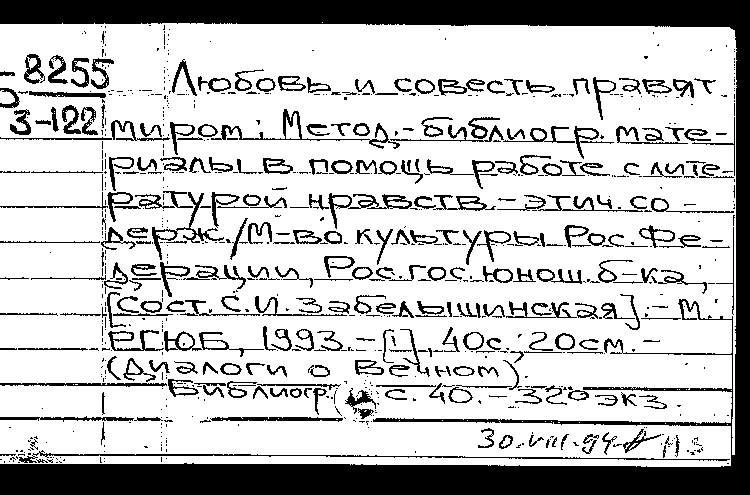 8255
3-122
Любовь и совесть правят
миром: Метод.-библиогр. мате-
риалы в помощь работе с лите-
ратурой нравств.-этич. со-
держ./М-во культуры Рос. Фе-
дерации, Рос. гос. юнош. б-ка;
[Сост. С.И. Забелышинская].- М.:
РГЮБ, 1993.-[1], 40с.; 20см.-
(Диалоги о Вечном).
Библиогр. с. 40.- 320 экз.
30.VIII.94